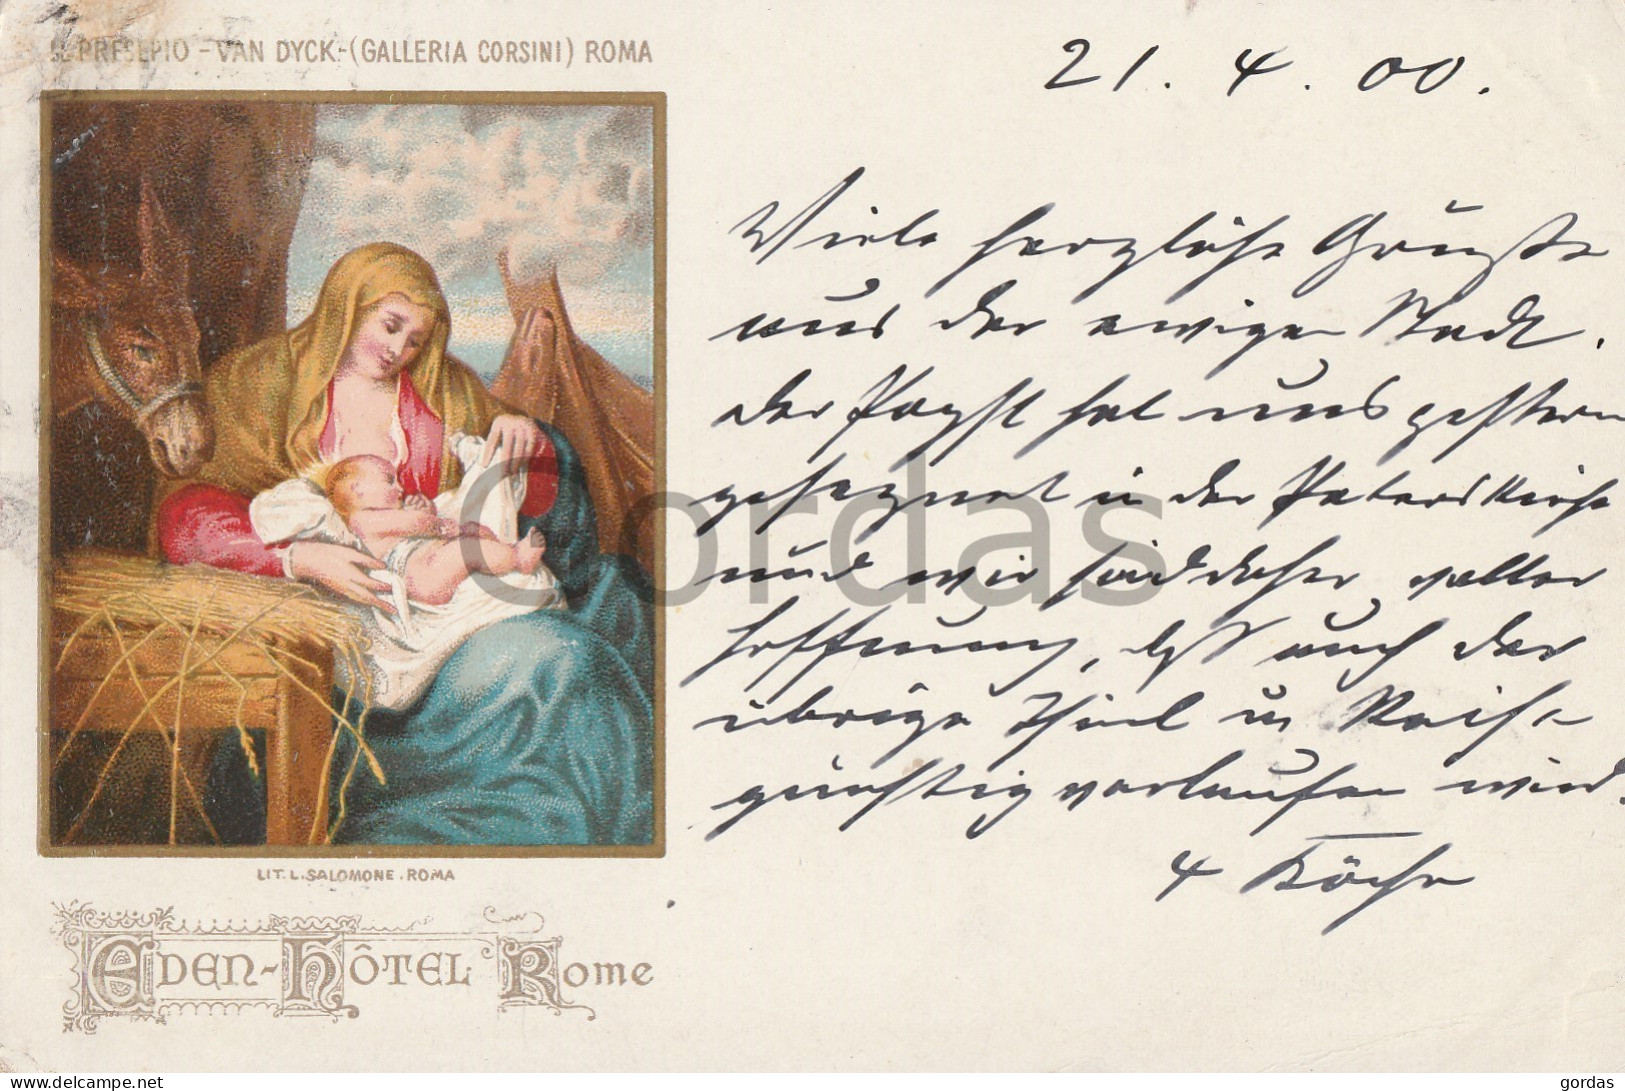 IL PRESEPIO - VAN DYCK - (GALLERIA CORSINI) ROMA
21. 4. 00.
Viele herzliche Grüsse
aus der ewigen Stadt.
der Papst hat uns gestern
gesegnet in der Peterskirche
und wir sind daher voller
Hoffnung, daß auch der
übrige Theil der Reise
günstig verlaufen wird.
4 Köche
LIT. L. SALOMONE. ROMA
EDEN-HÔTEL ROME
Cordas
www.delcampe.net
gordas